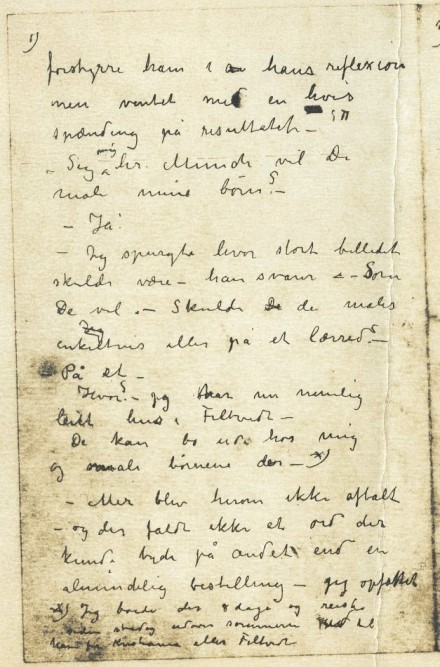 forstyrre ham i hans reflexion
men ventet med en hvis
spænding på resultatet –
„ Sig mig hr. Munch vil De
male mine børn? –
– Ja!
– Jeg spurgte hvor stort billedet
skulde være – han svarer – Som
De vil. – Skulde de males
enkeltvis eller på et lærred? –
På et –
Hvor? – Jeg har nu nemlig
leiet hus i Filtvedt –
De kan bo ude hos mig
og male børnene der – x)
– Mer blev herom ikke aftalt
– og der faldt ikke et ord der
kunde tyde på andet end en
almindelig bestilling – jeg opfattet
x) Jeg boede der 8 dage og reiste
siden stadig udover sommeren til
Kristiania eller Filtvedt